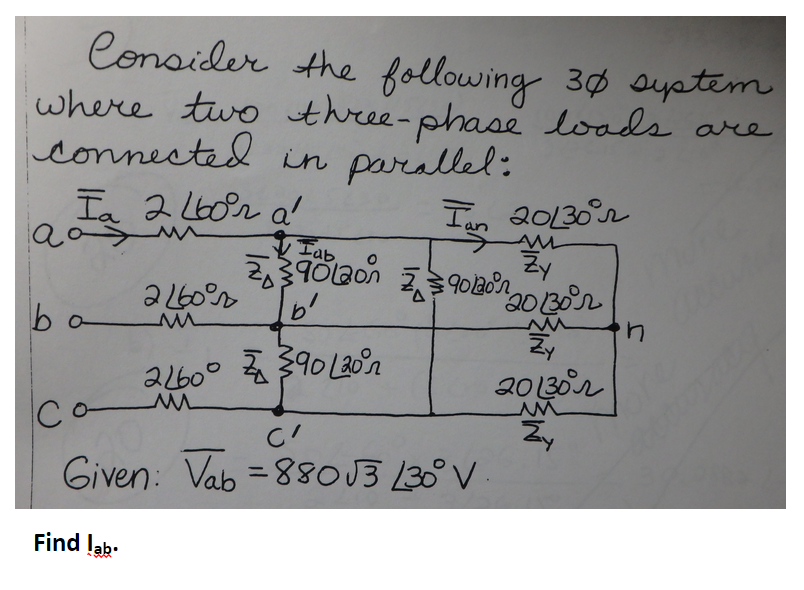 Consider the following 3Ø system
where two three-phase loads are
connected in parallel:
Ia 2∠60°Ω a' Ian 20∠30°Ω
a
Iab
ZΔ 90∠20°Ω ZΔ 90∠20°Ω ZY
2∠60°Ω b' 20∠30°Ω
b n
ZY
2∠60° ZΔ 90∠20°Ω 20∠30°Ω
c
c' ZY
Given: Vab = 880√3 ∠30° V
Find Iab.